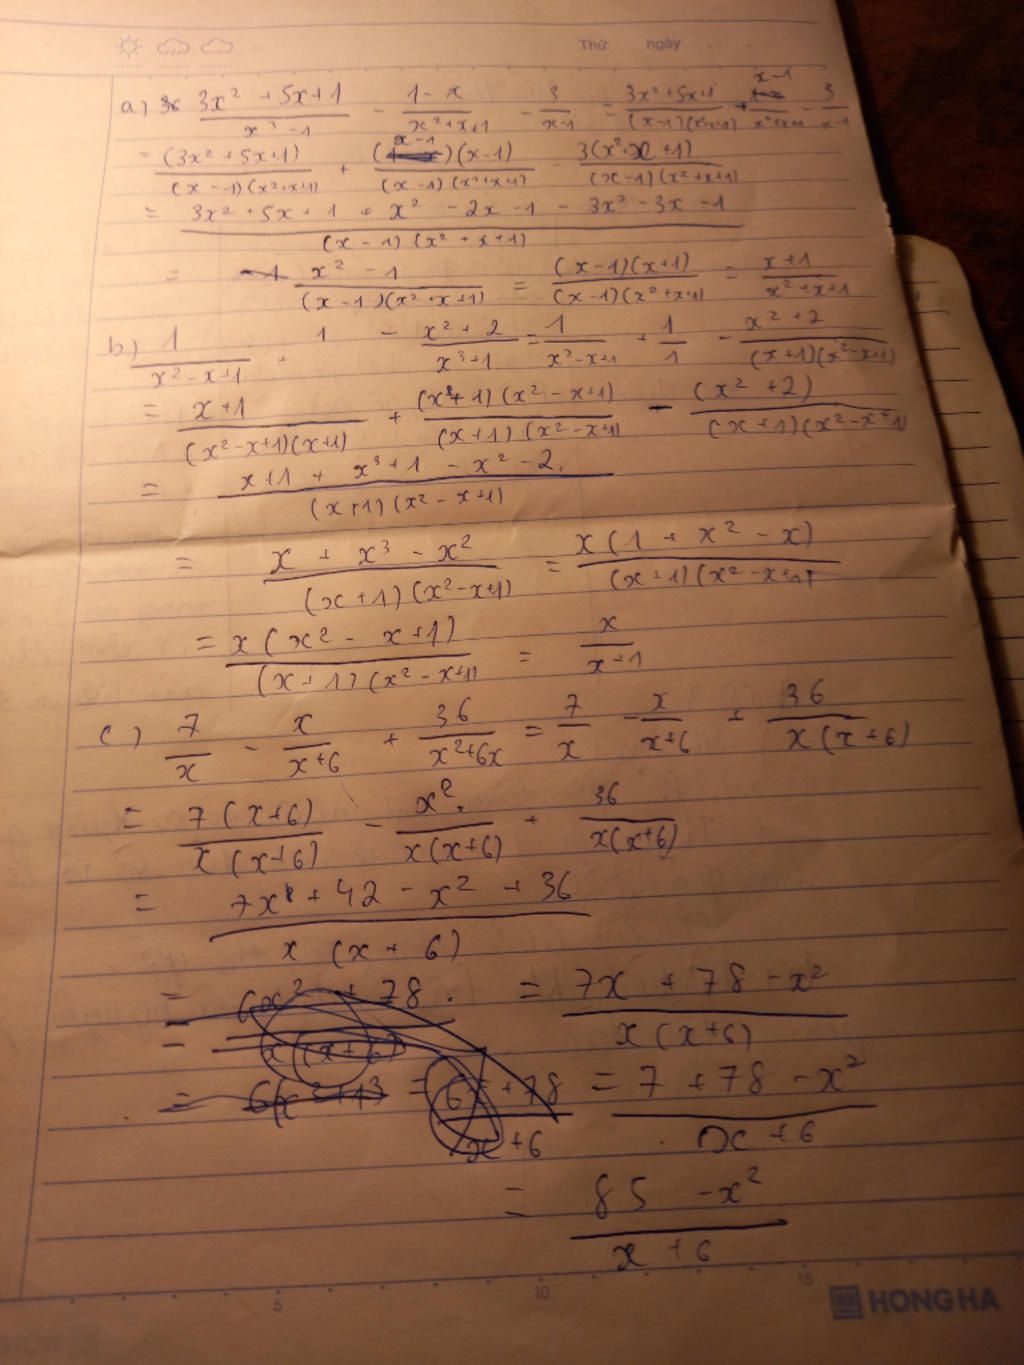 Thứ ngày
a) 3x² + 5x + 1 / x³ - 1 - 1 - x / x² + x + 1 - 3 / x - 1 = 3x² + 5x + 1 / (x - 1)(x² + x + 1) + x - 1 / x² + x + 1 - 3 / x - 1
= (3x² + 5x + 1) / (x - 1)(x² + x + 1) + (x - 1)(x - 1) / (x - 1)(x² + x + 1) - 3(x² + x + 1) / (x - 1)(x² + x + 1)
= 3x² + 5x + 1 + x² - 2x - 1 - 3x² - 3x - 1 / (x - 1)(x² + x + 1)
= x² - 1 / (x - 1)(x² + x + 1) = (x - 1)(x + 1) / (x - 1)(x² + x + 1) = x + 1 / x² + x + 1
b) 1 / x² - x + 1 + 1 - x² + 2 / x³ + 1 = 1 / x² - x + 1 + 1 / 1 - x² + 2 / (x + 1)(x² - x + 1)
= x + 1 / (x² - x + 1)(x + 1) + (x + 1)(x² - x + 1) / (x + 1)(x² - x + 1) - (x² + 2) / (x + 1)(x² - x + 1)
= x + 1 + x³ + 1 - x² - 2 / (x + 1)(x² - x + 1)
= x + x³ - x² / (x + 1)(x² - x + 1) = x(1 + x² - x) / (x + 1)(x² - x + 1)
= x(x² - x + 1) / (x + 1)(x² - x + 1) = x / x + 1
c) 7 / x - x / x + 6 + 36 / x² + 6x = 7 / x - x / x + 6 + 36 / x(x + 6)
= 7(x + 6) / x(x + 6) - x² / x(x + 6) + 36 / x(x + 6)
= 7x + 42 - x² + 36 / x(x + 6)
= 6x² + 78 / x(x + 6) = 7x + 78 - x² / x(x + 6)
= 6(x² + 13 = 6x + 78 / x + 6 = 7 + 78 - x² / x + 6
= 85 - x² / x + 6
5 10 15
HONG HA